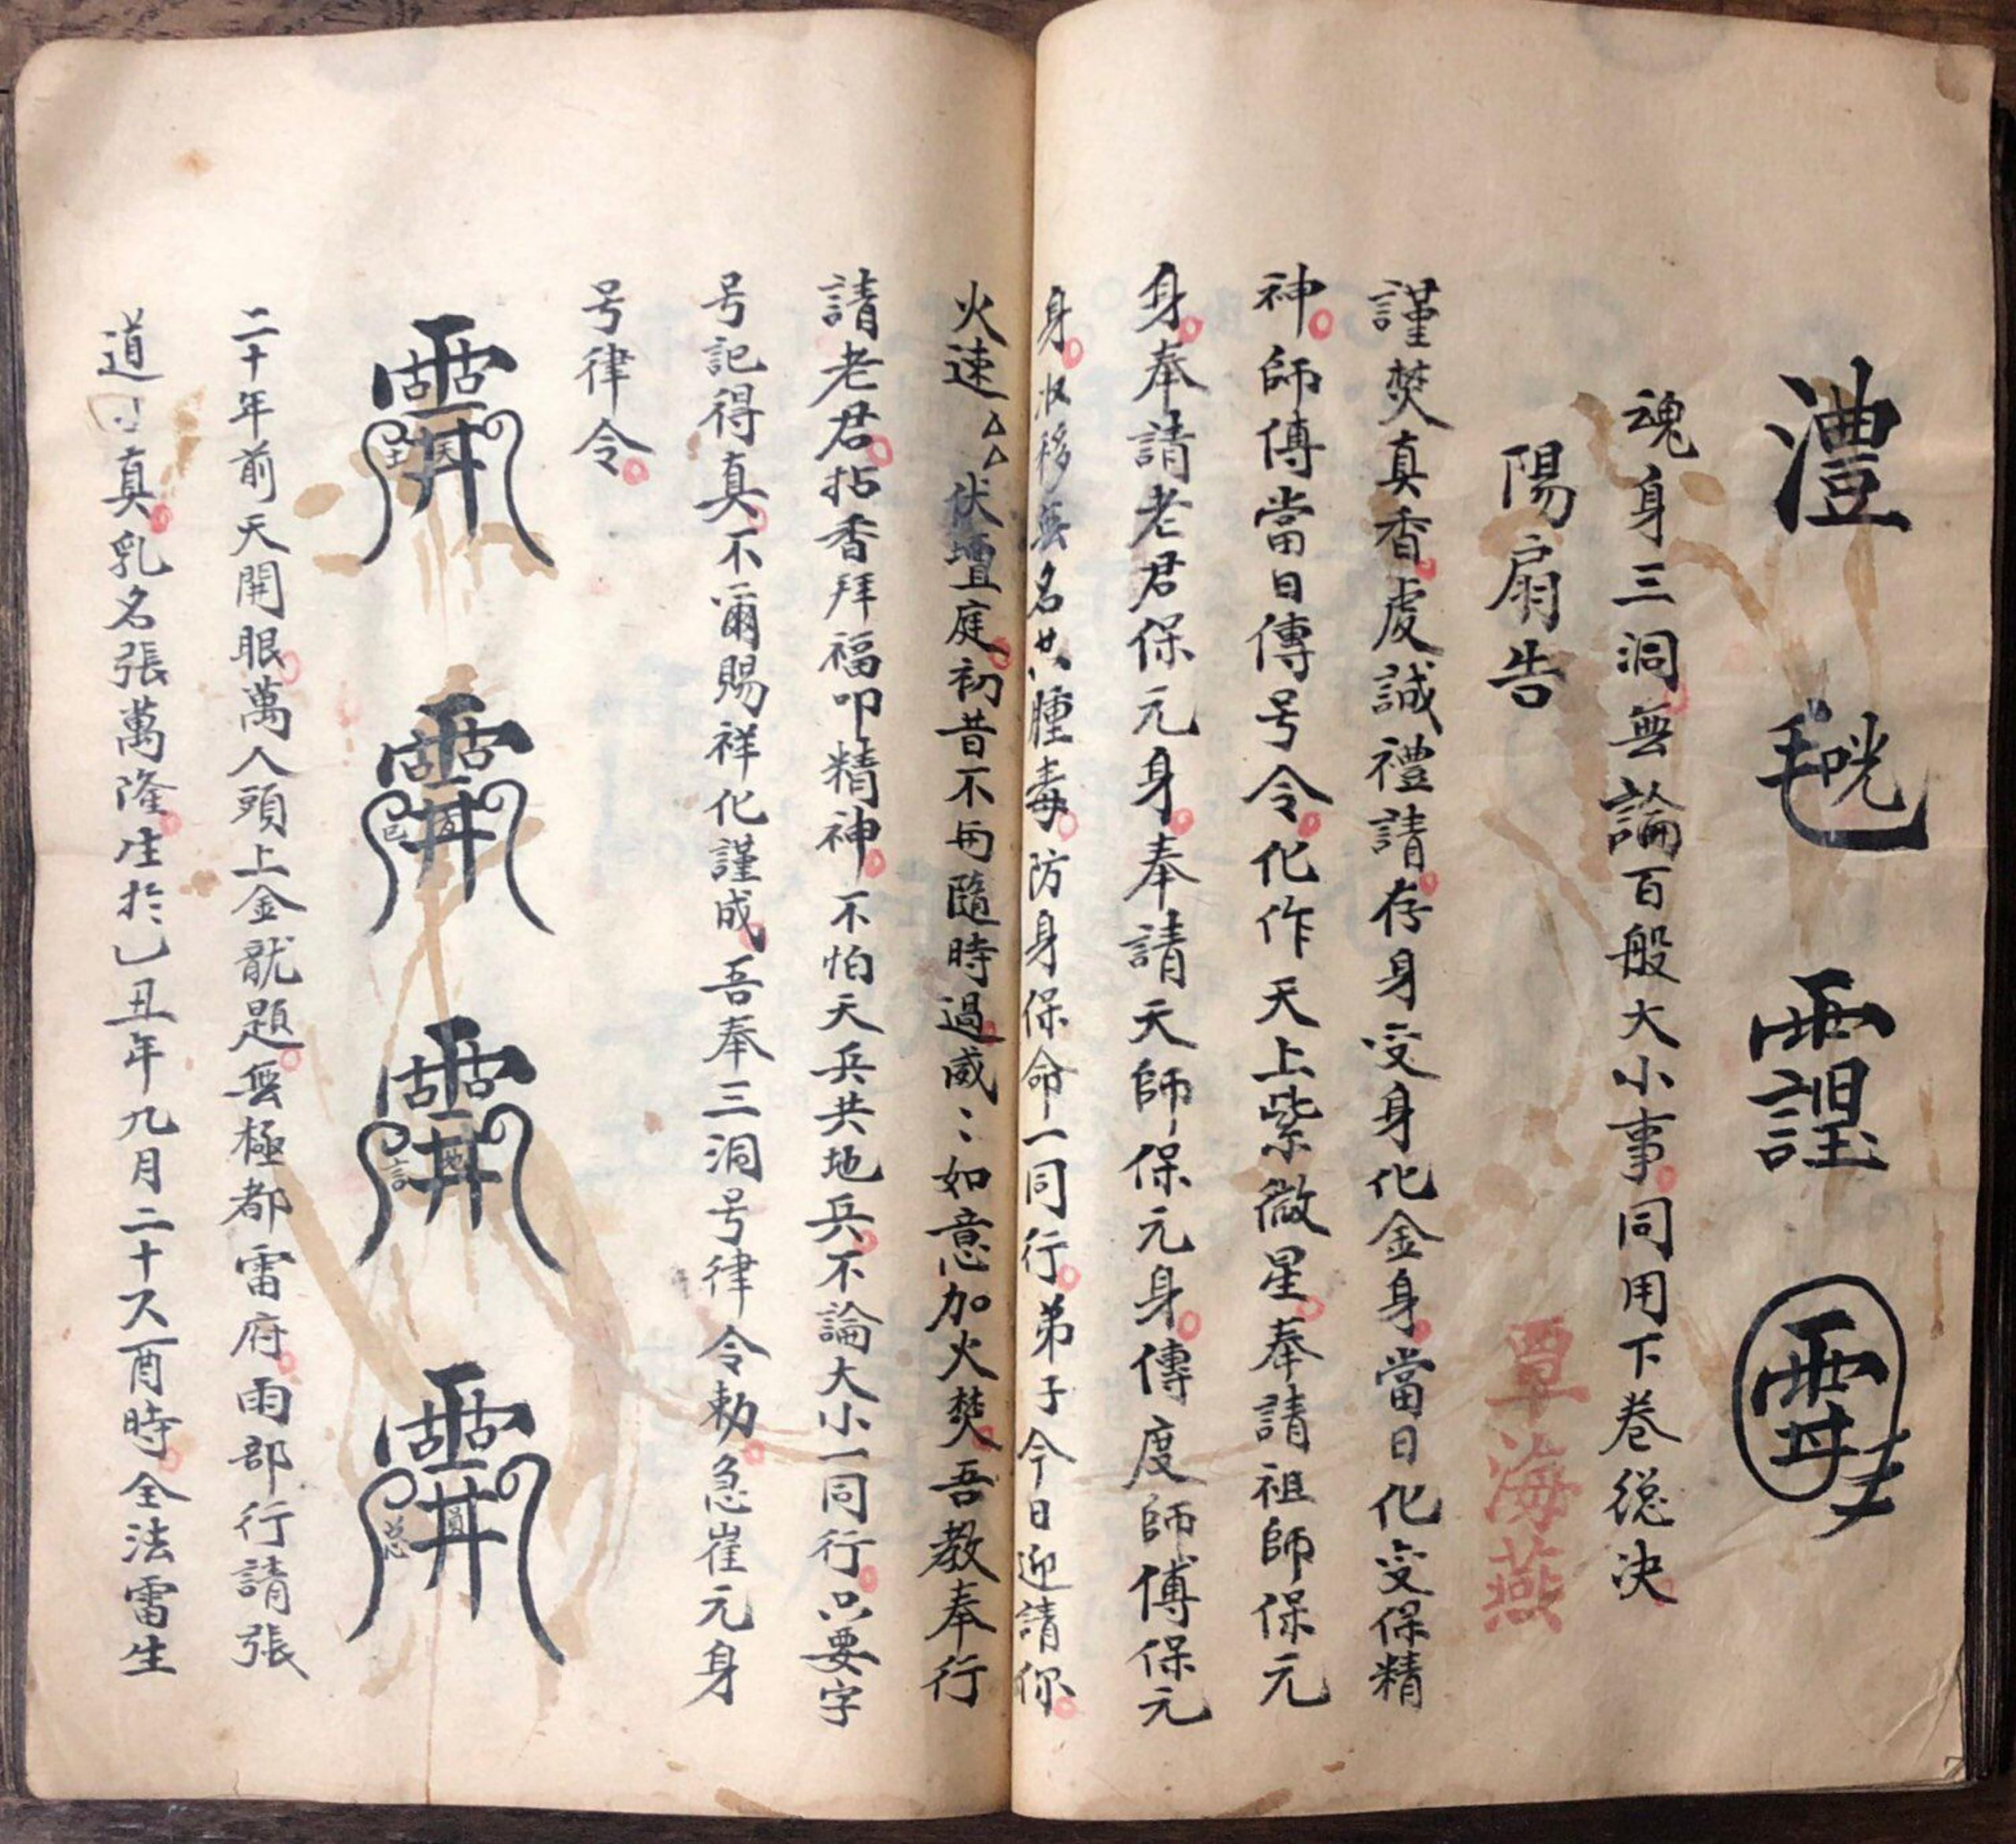 澧
魂身三洞無論百般大小事同用下卷總決
陽扇告
覃海燕
謹焚真香虔誠禮請存身变身化金身當日化变保精
神師傅當日傳号令化作天上紫微星奉請祖師保元
身奉請老君保元身奉請天師保元身傳度師傅保元
身 名 腫毒防身保命一同行弟子今日迎請你
火速 伏壇庭初昔不与隨時過威〻如意加火焚吾教奉行
請老君拈香拜福叩精神不怕天兵共地兵不論大小一同行只要字
号記得真不爾賜祥化謹成吾奉三洞号律令勅急崔元身
号律令
二十年前天開眼萬人頭上金龍題無極都雷府雨部行請張
道 真乳名張萬隆生於乙丑年九月二十 酉時全法雷生